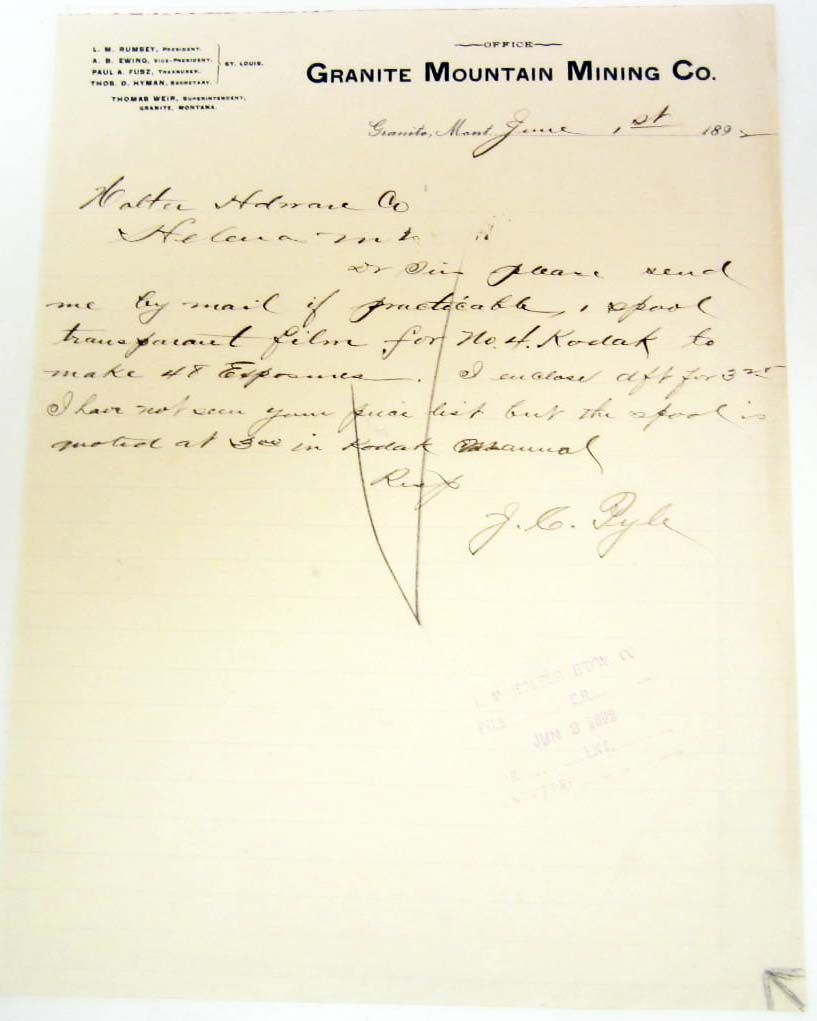 L. M. RUMSEY, PRESIDENT.
A. B. EWING, VICE-PRESIDENT.
PAUL A. FUSZ, TREASURER.
THOS. D. HYMAN, SECRETARY.
ST. LOUIS.
THOMAS WEIR, SUPERINTENDENT,
GRANITE, MONTANA.
OFFICE
GRANITE MOUNTAIN MINING CO.
Granite, Mont. June 1st 1892
Holter Hdware Co
Helena Mt
Dr Sir please send
me by mail if practicable, 1 spool
transparant film for No. 4. Kodak to
make 48 Exposures. I enclose dft for 3 25
I have not seen your price list but the spool is
quoted at 3 00 in Kodak Manual
Resp
J. C. Pyle
HDW. CO
JUN 3 1892